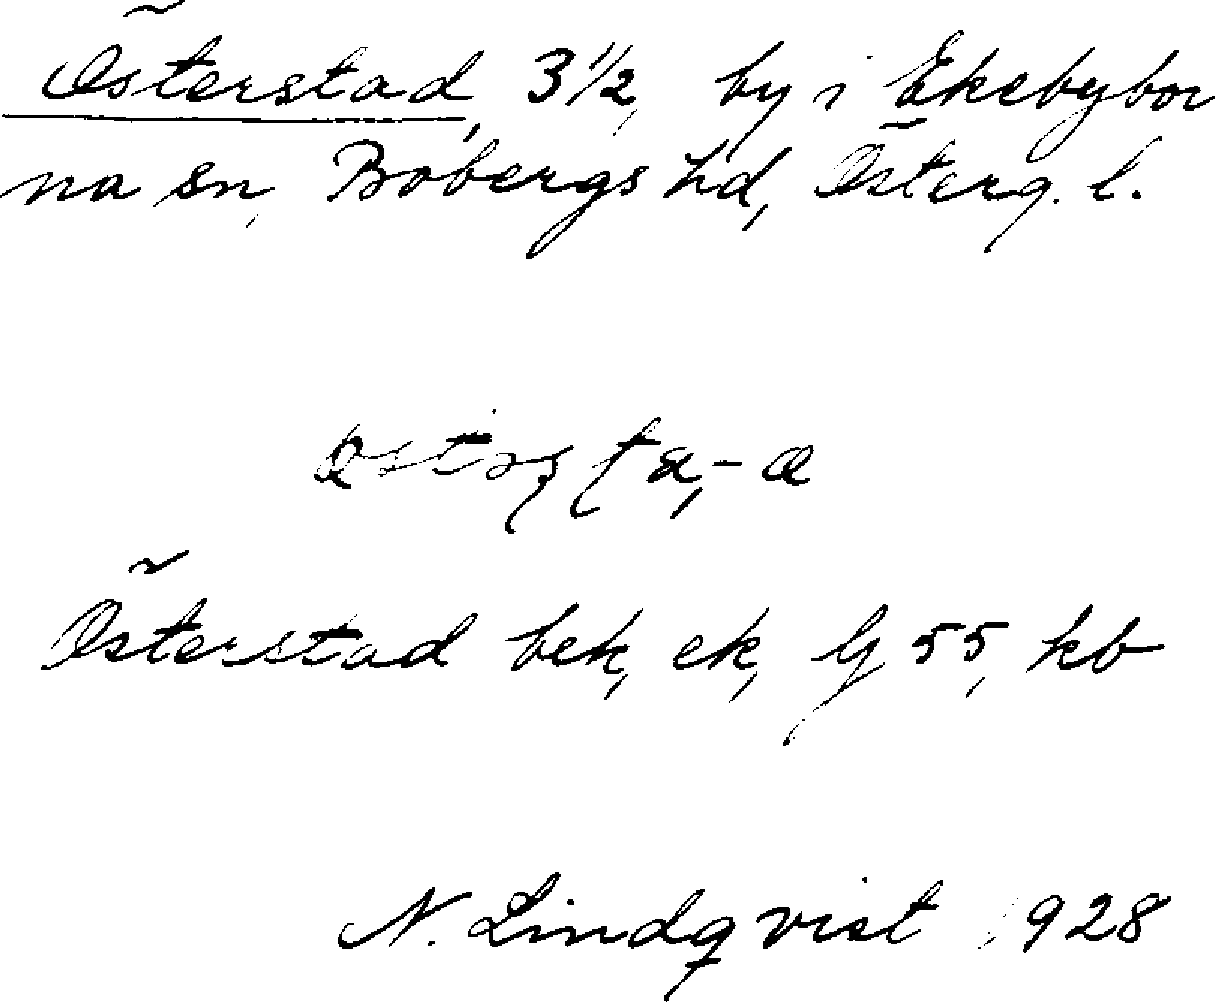 Österstad, 3 1/2, by i Ekebybor
na sn, Bobergs hd, Österg. l.
Österstad bek, ek, lj 55, kb
N. Lindqvist 1928